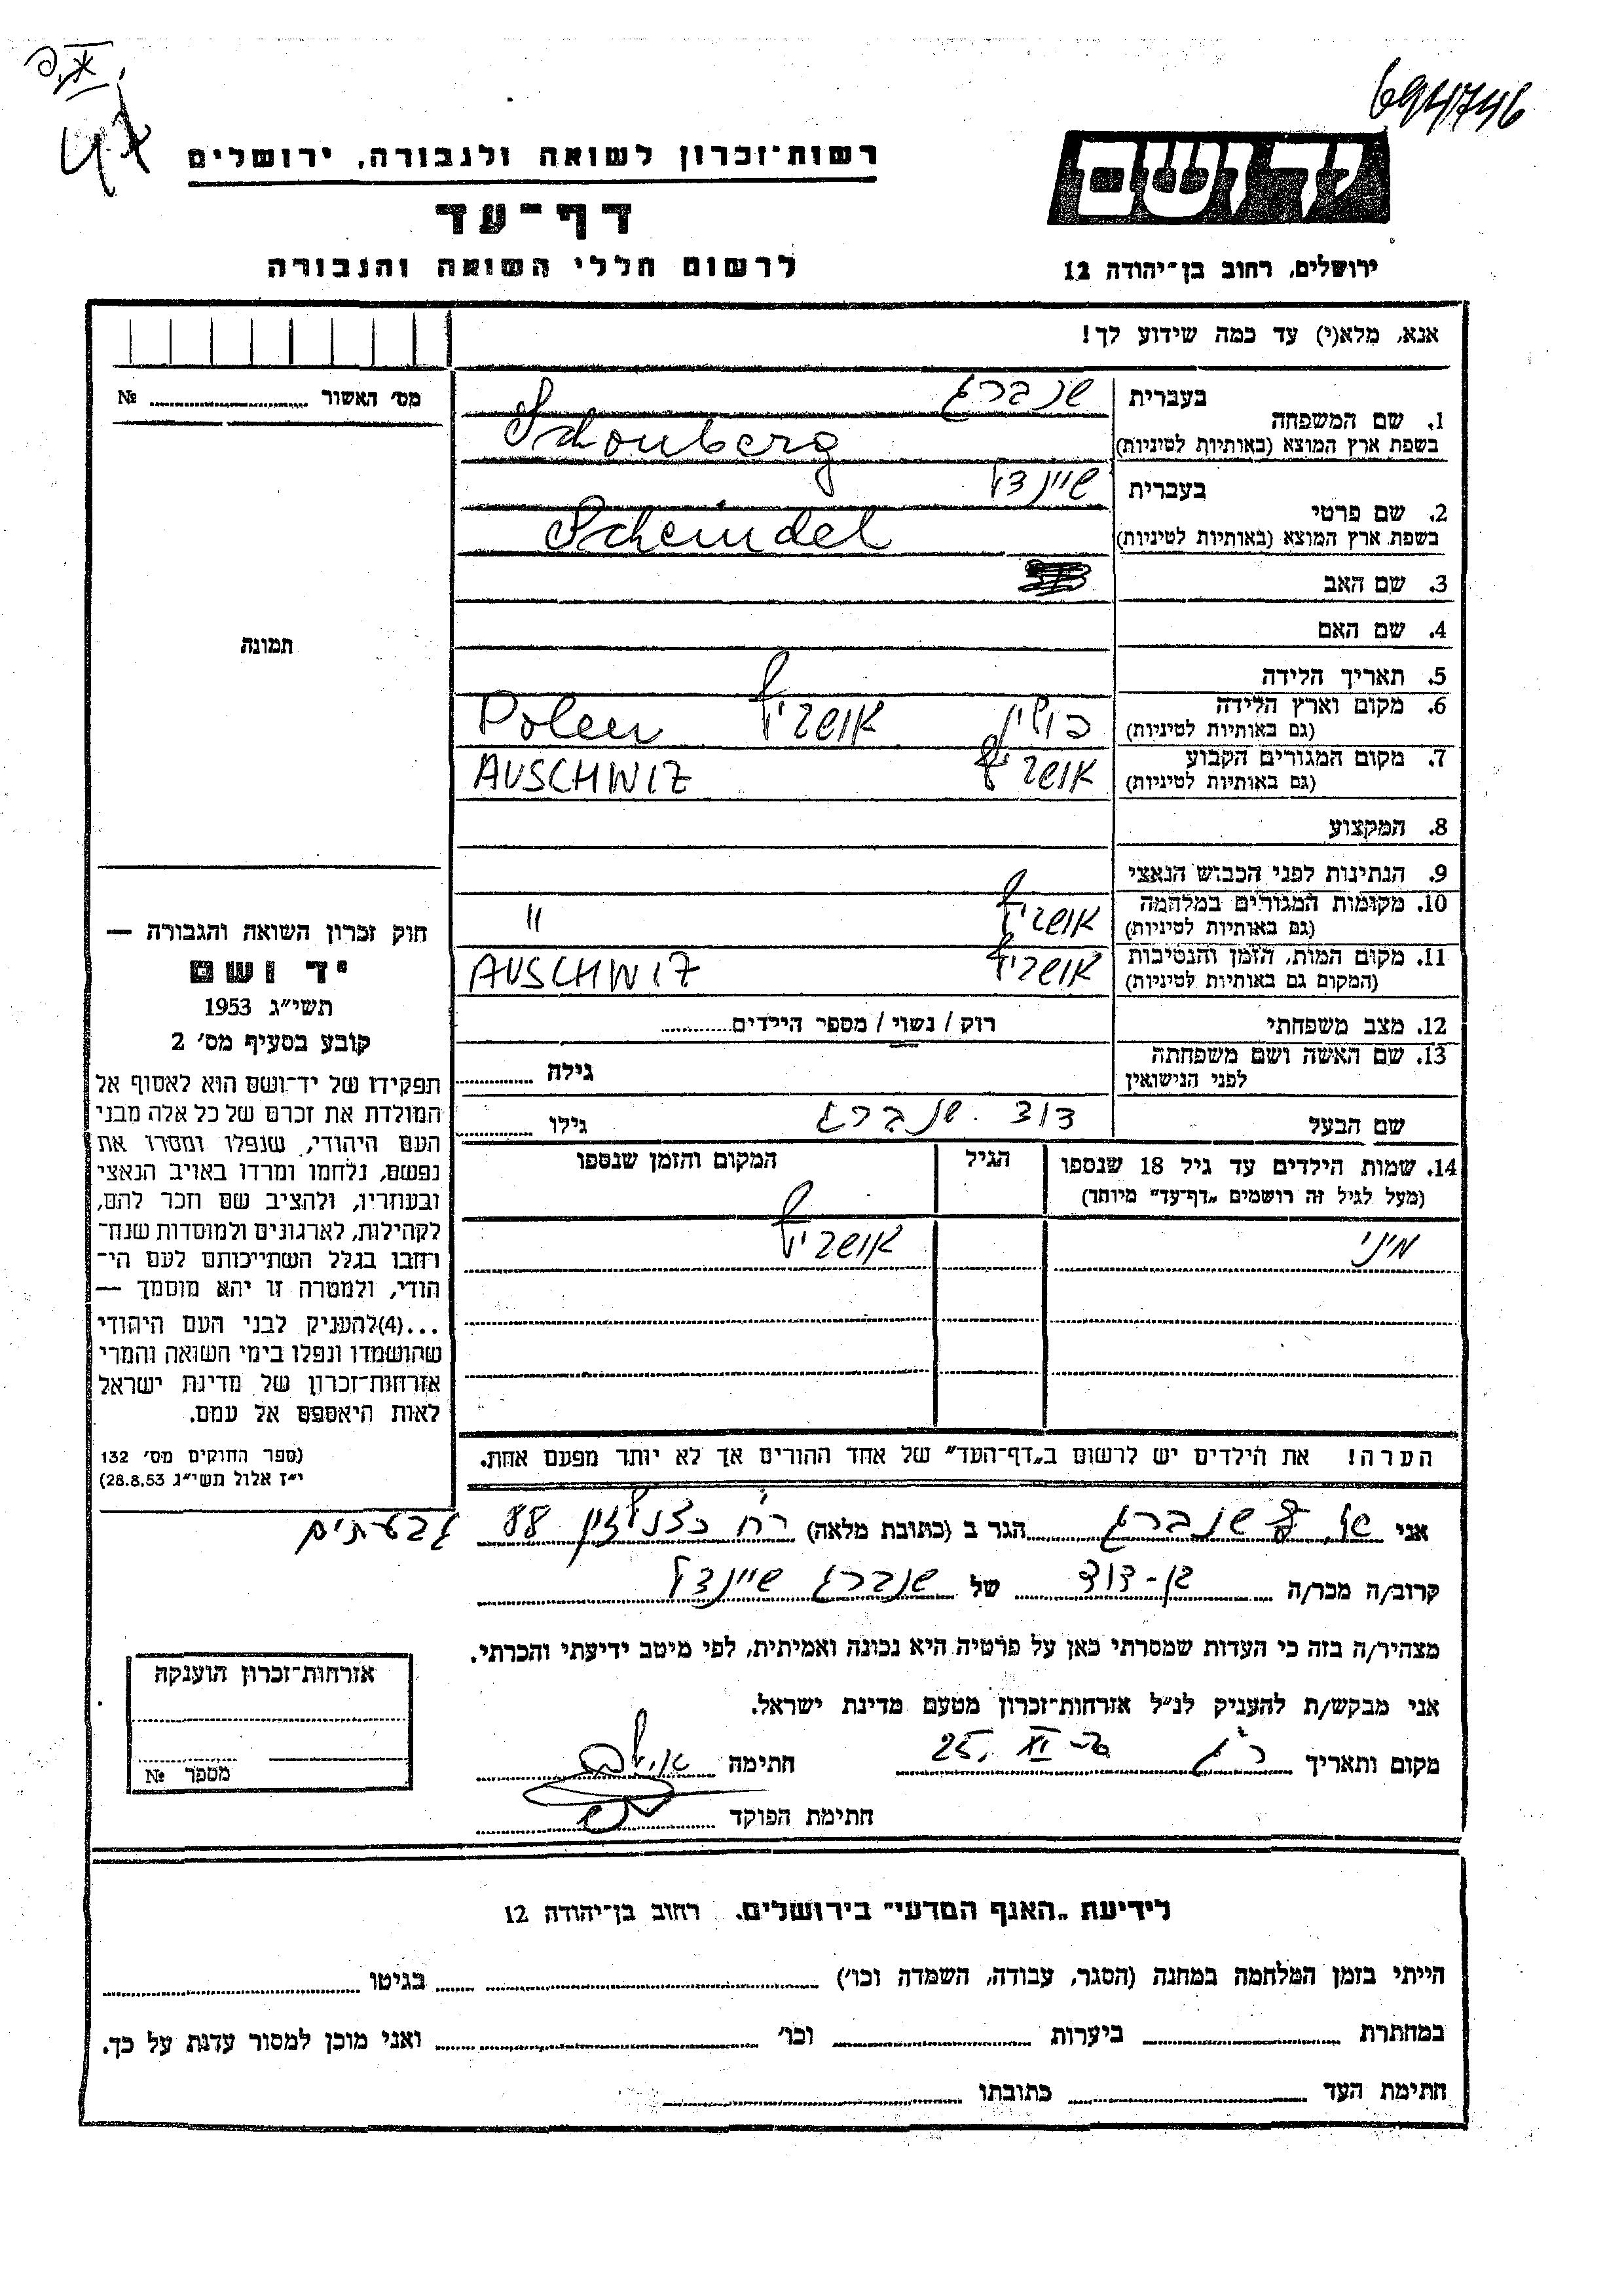 6941746
רשות־זכרון לשואה ולגבורה, ירושלים
יד ושם
דף־עד
לרשום חללי השואה והגבורה
ירושלים, רחוב בן־יהודה 12
אנא, מלא(י) עד כמה שידוע לך!
מס׳ האשור № 
1. שם המשפחה
בעברית שנברג
בשפת ארץ המוצא (באותיות לטיניות) Schonberg
2. שם פרטי
בעברית שיינדל
בשפת ארץ המוצא (באותיות לטיניות) Scheindel
3. שם האב
4. שם האם
תמונה
5. תאריך הלידה
6. מקום וארץ הלידה (גם באותיות לטיניות) פולין אושביץ Polen
7. מקום המגורים הקבוע (גם באותיות לטיניות) אושביץ AUSCHWIZ
8. המקצוע
9. הנתינות לפני הכבוש הנאצי
10. מקומות המגורים במלחמה (גם באותיות לטיניות) אושביץ "
11. מקום המות, הזמן והנסיבות (המקום גם באותיות לטיניות) אושביץ AUSCHWIZ
12. מצב משפחתי רוק / נשוי / מספר הילדים
13. שם האשה ושם משפחתה לפני הנישואין גילה
שם הבעל דוד שנברג גילו
14. שמות הילדים עד גיל 18 שנספו הגיל המקום והזמן שנספו
(מעל לגיל זה רושמים „דף־עד” מיוחד)
מיני אושביץ
הערה! את הילדים יש לרשום ב„דף־העד” של אחד ההורים אך לא יותר מפעם אחת.
חוק זכרון השואה והגבורה —
יד ושם
תשי״ג 1953
קובע בסעיף מס׳ 2
תפקידו של יד־ושם הוא לאסוף אל
המולדת את זכרם של כל אלה מבני
העם היהודי, שנפלו ומסרו את
נפשם, נלחמו ומרדו באויב הנאצי
ובעוזריו, ולהציב שם וזכר להם,
לקהילות, לארגונים ולמוסדות שנח־
רבו בגלל השתייכותם לעם הי־
הודי, ולמטרה זו יהא מוסמך —
...(4)להעניק לבני העם היהודי
שהושמדו ונפלו בימי השואה והמרי
אזרחות־זכרון של מדינת ישראל
לאות היאספם אל עמם.
(ספר החוקים מס׳ 132
י״ז אלול תשי״ג 28.8.53)
אני שנברג הגר ב (כתובת מלאה) רח׳ כצנלסון 88 גבעתיים
קרוב/ה מכר/ה בן-דוד של שנברג שיינדל
מצהיר/ה בזה כי העדות שמסרתי כאן על פרטיה היא נכונה ואמיתית, לפי מיטב ידיעתי והכרתי.
אני מבקש/ת להעניק לנ״ל אזרחות־זכרון מטעם מדינת ישראל.
מקום ותאריך ר״ג 25. חתימה
חתימת הפוקד
אזרחות־זכרון הוענקה
מספר №
לידיעת „האגף המדעי” בירושלים. רחוב בן־יהודה 12
הייתי בזמן המלחמה במחנה (הסגר, עבודה, השמדה וכו׳) בגיטו
במחתרת ביערות וכו׳ ואני מוכן למסור עדות על כך.
חתימת העד כתובתו